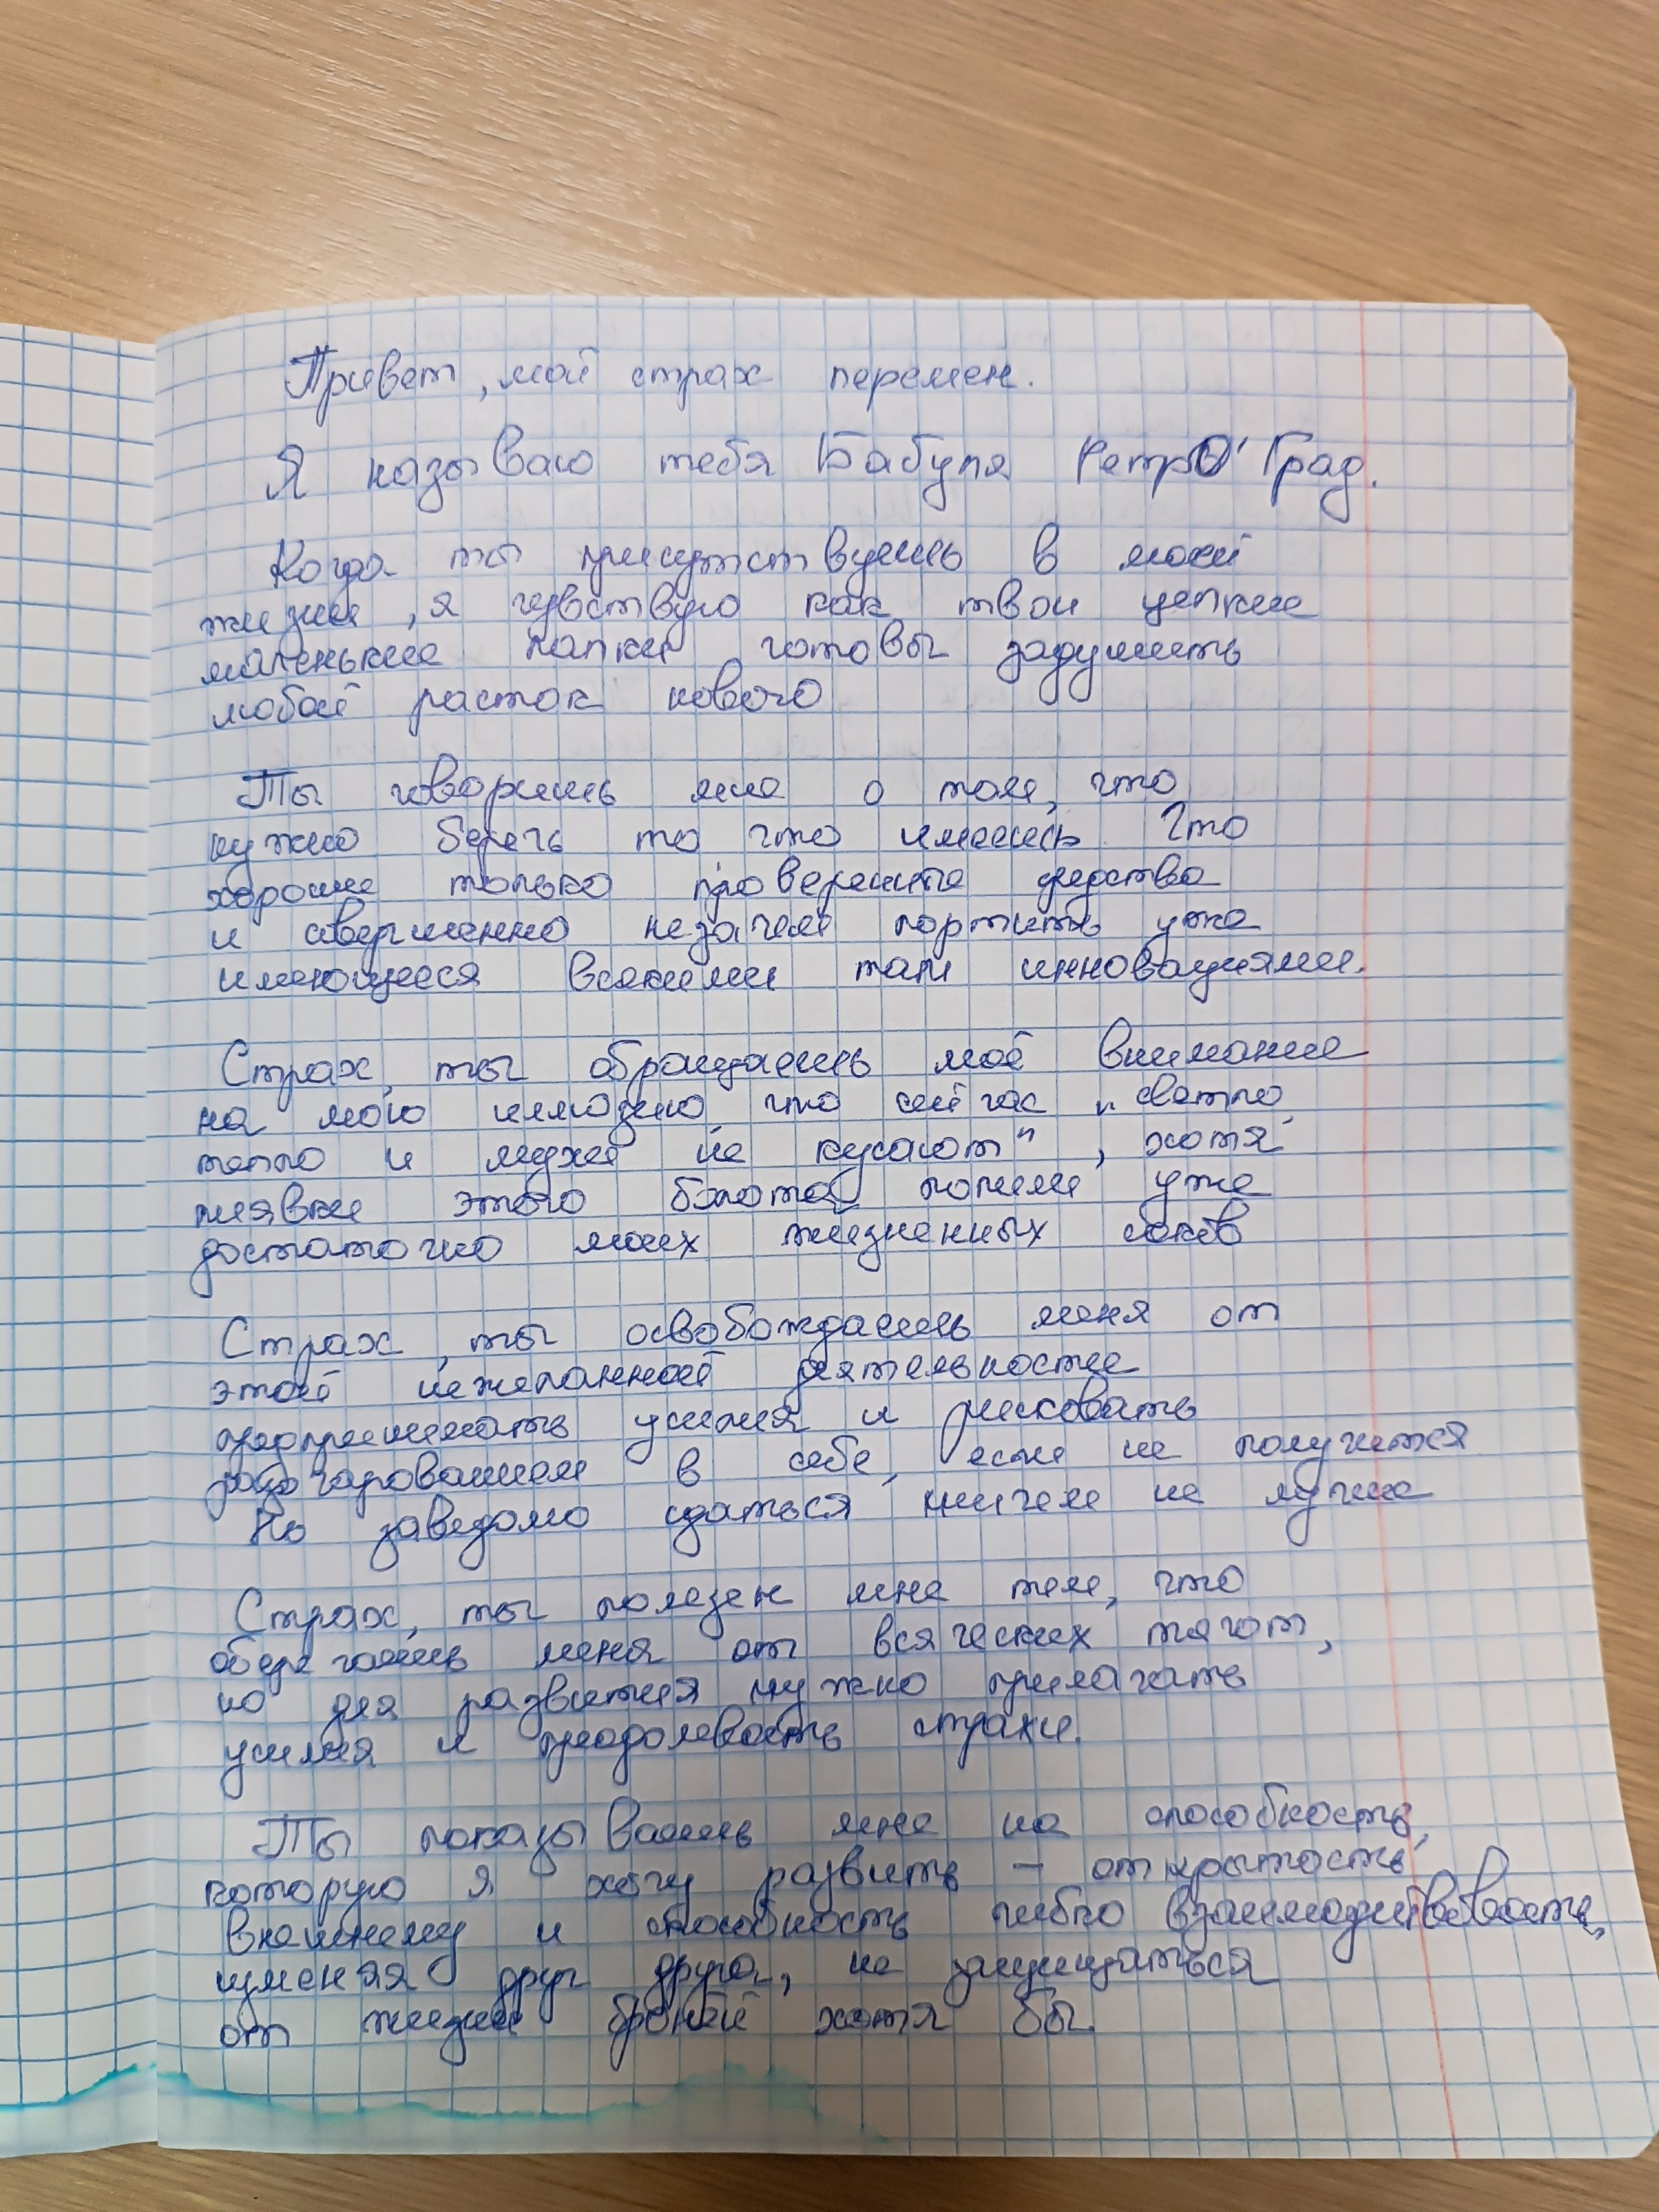 Привет, мой страх перемен.
Я называю тебя Бабуля РетрО' Град.
Когда ты присутствуешь в моей
жизни, я чувствую как твои цепкие
маленькие лапки готовы задушить
любой росток нового
Ты говоришь мне о том, что
нужно беречь то что имеешь. Что
хороши только проверенные средства
и совершенно незачем портить уже
имеющееся всякими там инновациями.
Страх, ты обращаешь моё внимание
на мою иллюзию что сейчас "светло,
тепло и мухи не кусают", хотя
пиявки этого болота попили уже
достаточно моих жизненных соков
Страх, ты освобождаешь меня от
этой нежеланной деятельности
предпринимать усилия и рисковать
разочарованием в себе, если не получится
Но заведомо сдаться ничем не лучше
Страх, ты полезен мне тем, что
оберегаешь меня от всяческих тягот,
но для развития нужно прилагать
усилия и преодолевать страхи.
Ты показываешь мне на способность,
которую я хочу развить – открытость
внешнему и способность гибко взаимодействовать,
изменяя друг друга, не защищаться
от жизни бронёй хотя бы.